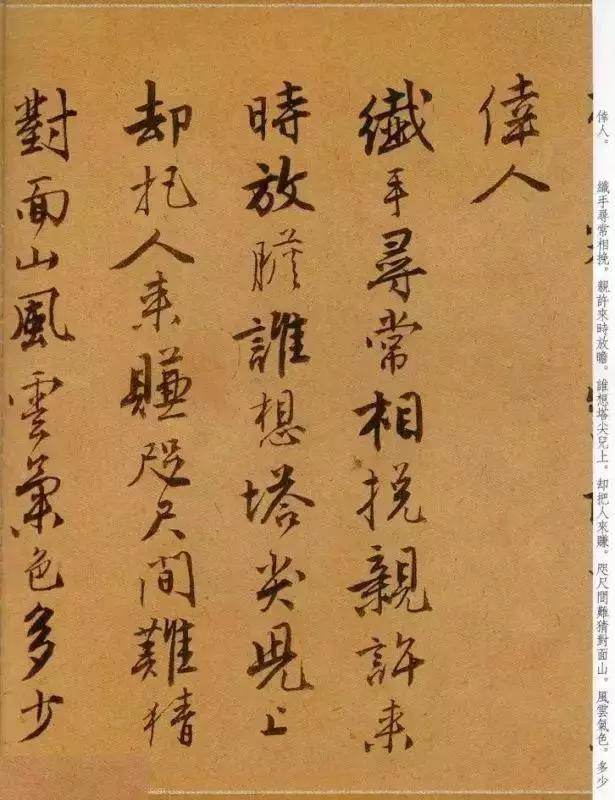 偉人
纖手尋常相挽親許来
時放膽誰想塔尖兒上
却把人来賺咫尺間難猜
對面山風雲氣色多少
偉人。 纖手尋常相挽。親許來時放瞻。誰想塔尖兄上。却把人來賺。咫尺間難猜對面山。風雲氣色。多少